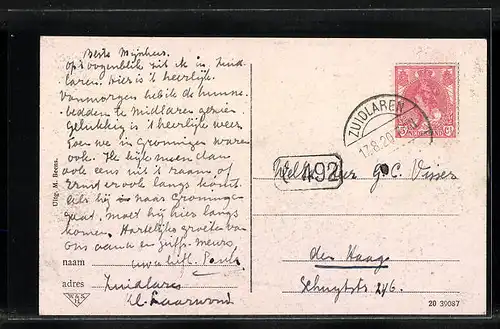 Beste Mijnheer.
op 't oogenblik zit ik in Zuid
laren. Hier is 't heerlijk.
Vanmorgen heb ik de hunne-
bedden te Midlaren gezien
Gelukkig is 't heerlijk weer
Toen we in Groningen waren
ook. Ik kijk meen dan
ook eens uit 't raam of
Ernst er ook langs komt
als hij naar Groningen
gaat, moet hij hier langs
komen. Hartelijke groeten van
ons aan u en
naam
adres Zuidlaren
Uitg. M. Beens.
ZUIDLAREN
17.8.20
NEDERLAND
492
G. C. Visser
den Haag
246.
20 39087